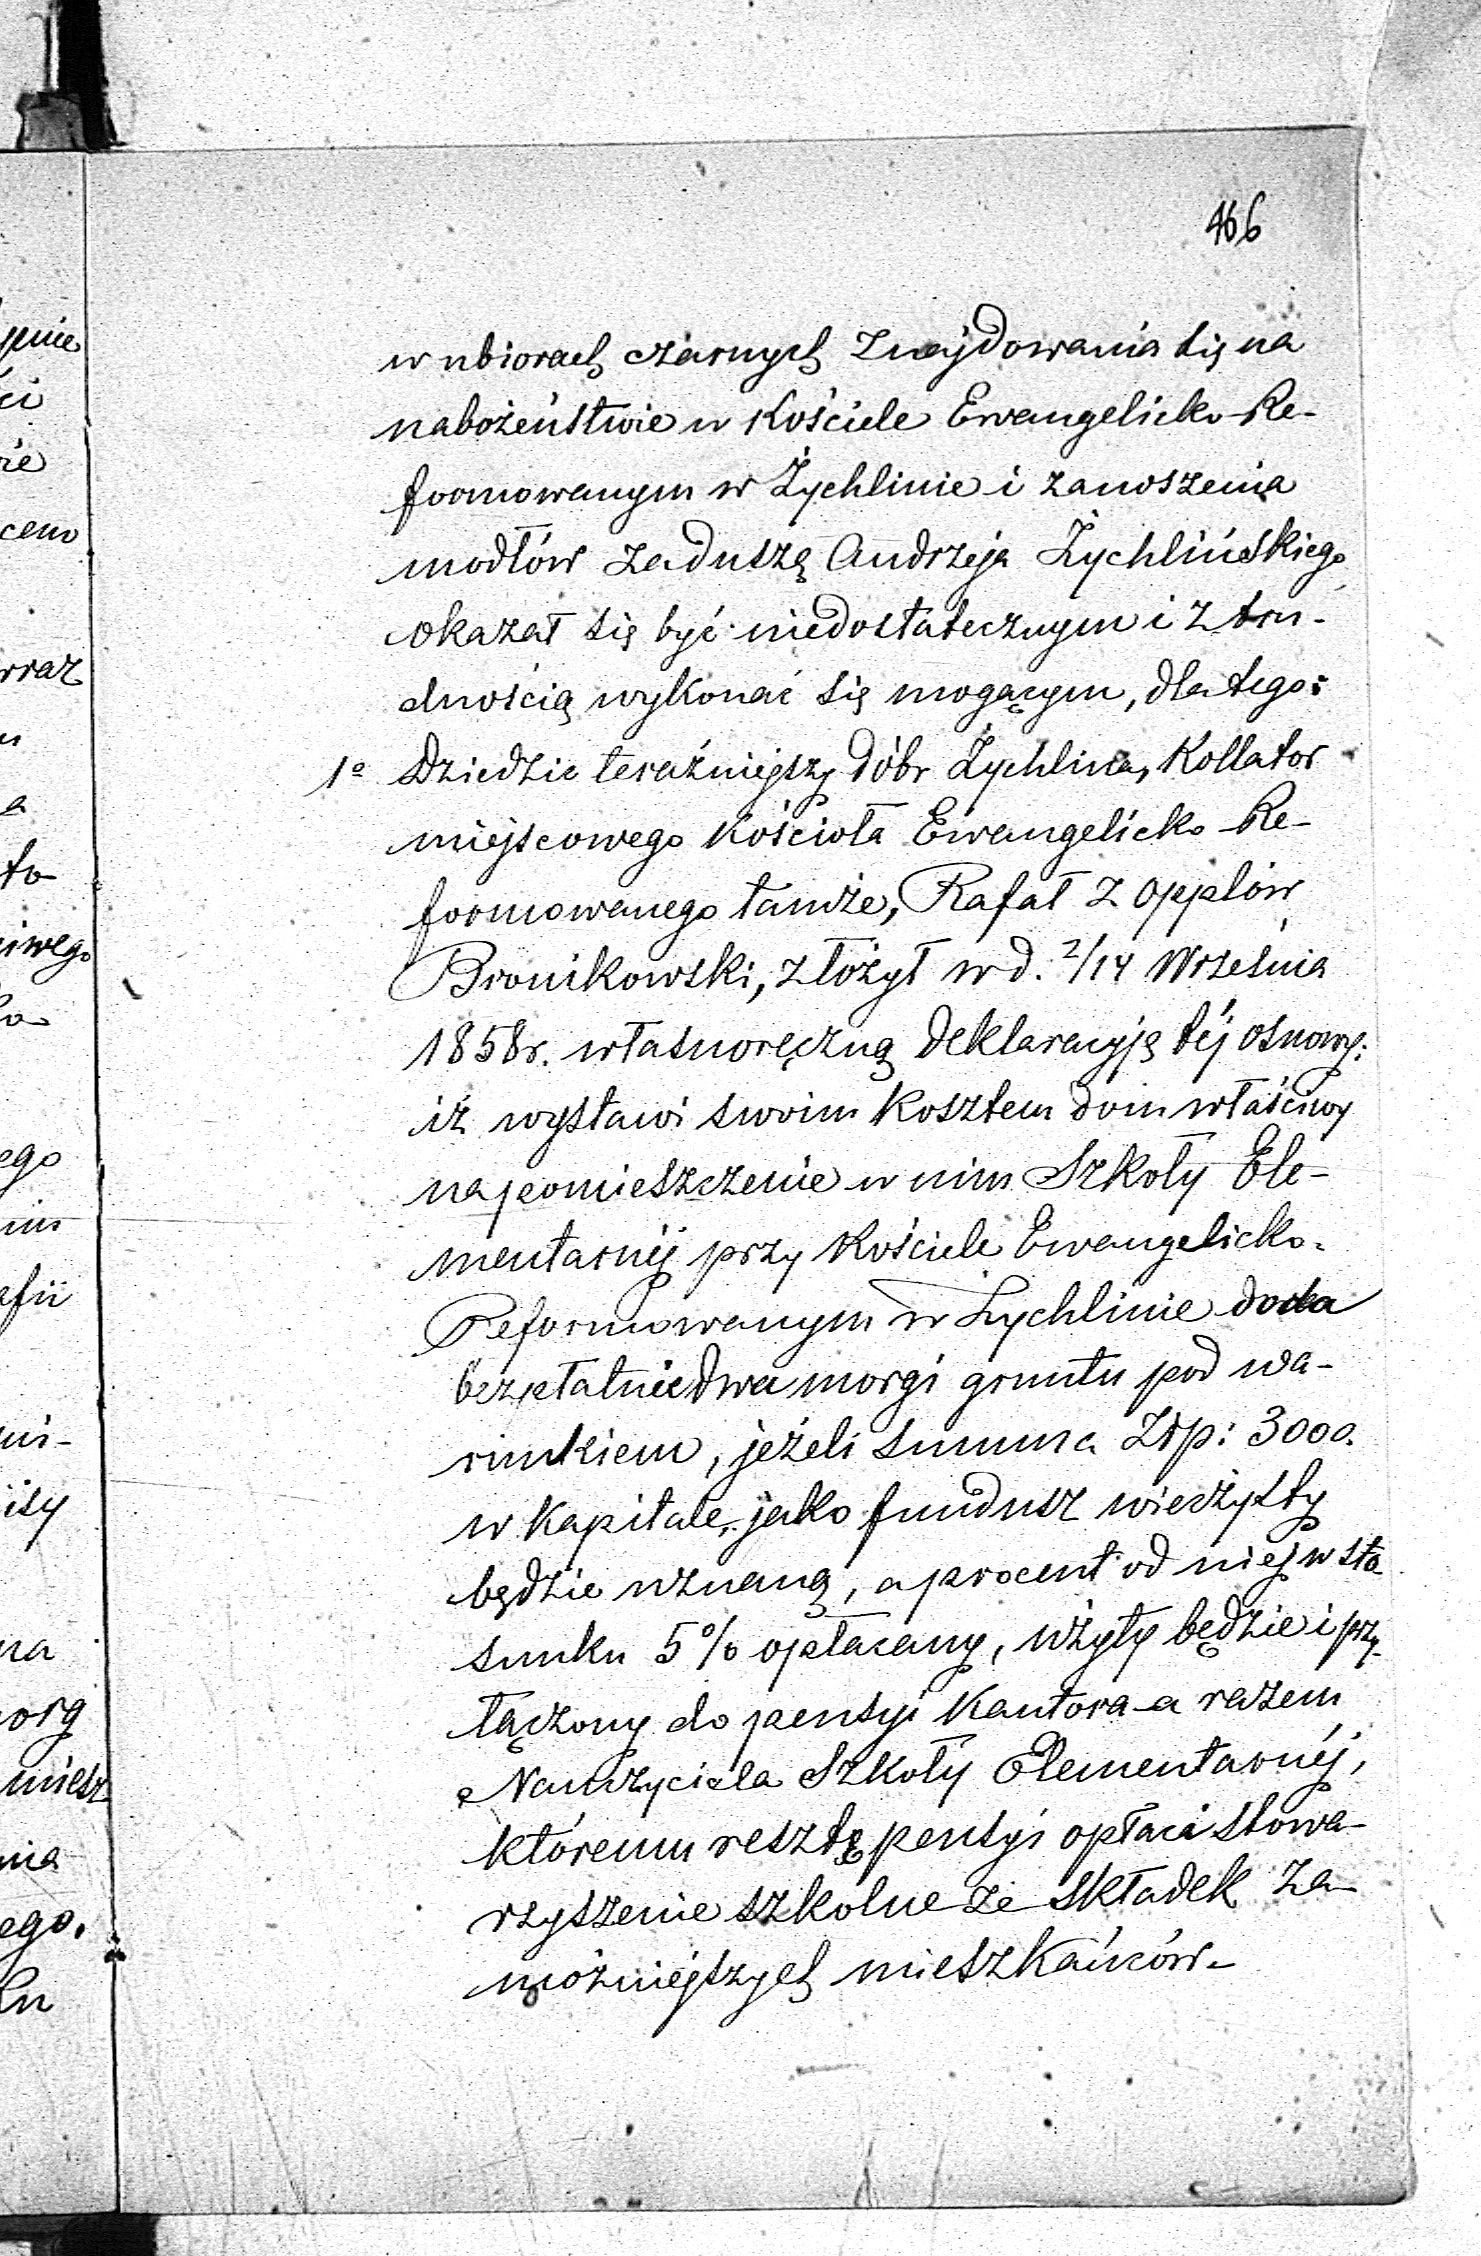 466
w ubiorach czarnych znajdowania się na
nabożeństwie w Kościele Ewangelicko-Re-
formowanym w Żychlinie i zanoszenia
modłów za duszą Andrzeja Żychlińskiego
okazał się być niedostatecznym i z tru-
dnością wykonać się mogącym, dla tego:
1º Dziedzic teraźniejszy dóbr Żychlina, Kollator
miejscowego Kościoła Ewangelicko-Re-
formowanego tamże, Rafał z Opplów
Bronikowski, złożył w d. 2/14 Września
1858 r. własnoręczną deklaracyję téj osnowy:
iż wystawi swoim kosztem dom właściwy
na pomieszczenie w nim Szkoły Ele-
mentarnéj przy Kościele Ewangelicko-
Reformowanym w Żychlinie doda
bezpłatnie dwa morgi gruntu pod wa-
runkiem, jeżeli summa Złp: 3000.
w kapitale, jako fundusz wieczysty
będzie uznaną, a procent od niej w sto-
sunku 5% opłacany, użyty będzie i przy-
łączony do pensyi Kantora a razem
Nauczyciela Szkoły Elementarnéj,
któremu resztę pensyi opłaci stowa-
rzyszenie szkolne ze składek za-
możniejszych mieszkańców.
ynie
ci
cie
cemo
wraz
a
to
iwego
ego
nim
afii
isy
na
morg
miesz
nia
ego.